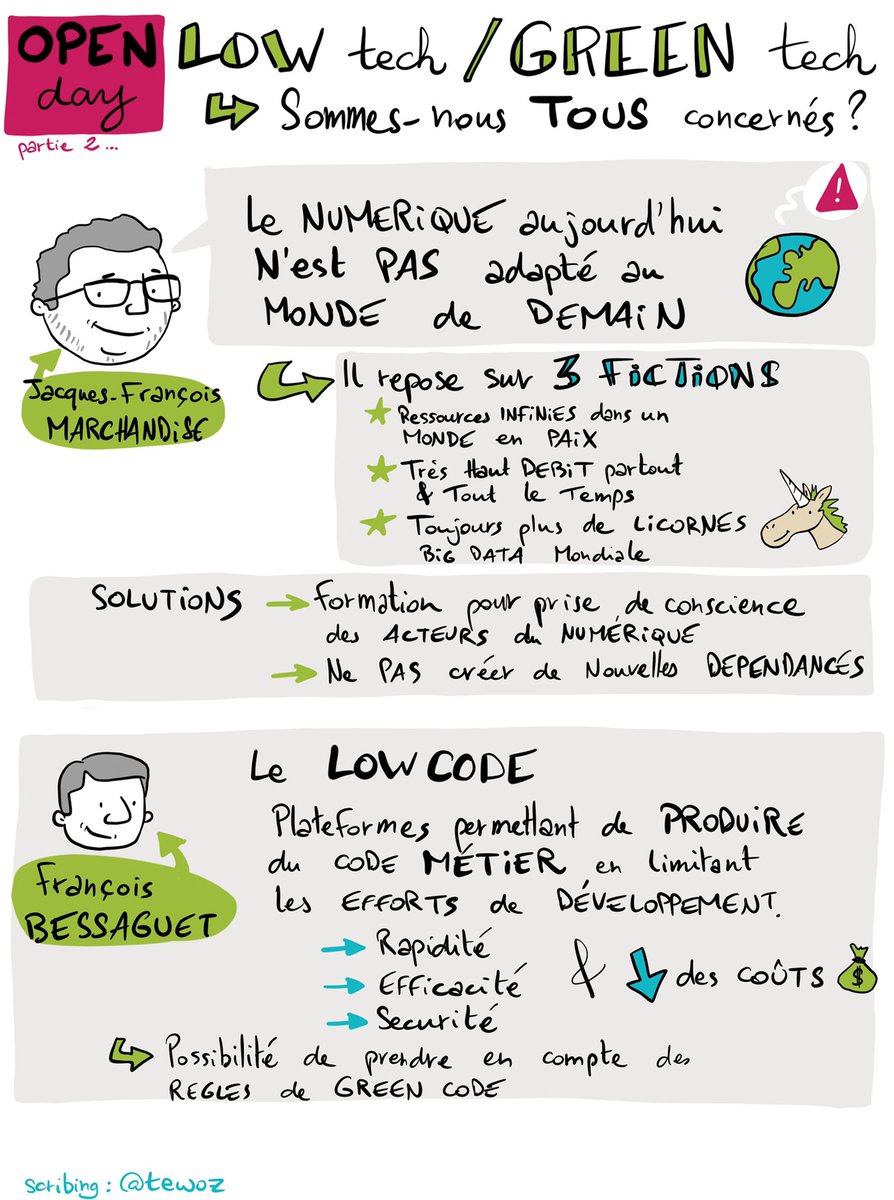 OPEN
day
partie 2...
LOW tech / GREEN tech
Sommes-nous TOUS concernés ?
Le NUMERIQUE aujourd'hui
N'est PAS adapté au
MONDE de DEMAIN
Jacques-François
MARCHANDISE
Il repose sur 3 FICTIONS
Ressources INFINIES dans un
MONDE en PAIX
Très Haut DEBIT partout
& Tout le Temps
Toujours plus de LICORNES
BIG DATA Mondiale
SOLUTIONS
Formation pour prise de conscience
des ACTEURS du NUMÉRIQUE
Ne PAS créer de Nouvelles DEPENDANCES
Le LOW CODE
François
BESSAGUET
Plateformes permettant de PRODUIRE
du CODE MÉTIER en limitant
les EFFORTS de DÉVELOPPEMENT.
Rapidité
Efficacité
Securité
& des COÛTS
$
Possibilité de prendre en compte des
REGLES de GREEN CODE
scribing : @tewoz